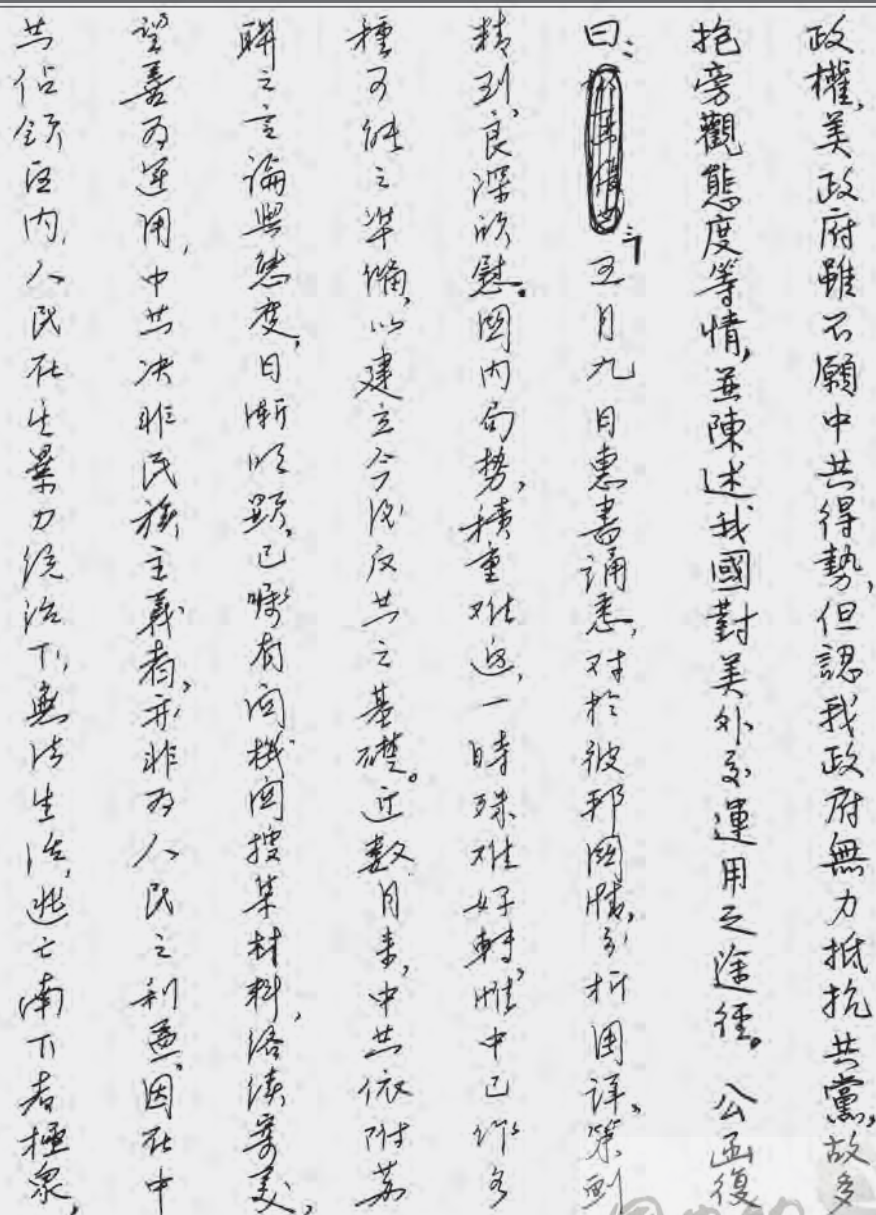 政權，美政府雖不願中共得勢，但認我政府無力抵抗共黨，故多
抱旁觀態度等情，並陳述我國對美外交運用之途徑。公函復
曰：「五月九日惠書誦悉，对於彼邦國情，分析周詳，策劃
精到，良深欣慰。國内局势，積重难返，一時殊难好轉，惟中已作各
種可能之準備，以建立今後反共之基礎。近数月来，中共依附苏
联之言論與態度，日漸明顯，已嘱有関機関搜集材料，陸續寄美，
望善为運用，中共决非民族主義者，亦非为人民之利益，因在中
共佔領区内，人民在生暴力统治下，無法生活，逃亡南下者極眾，